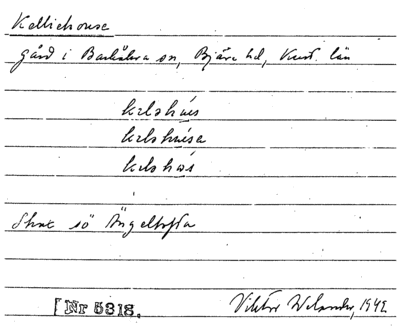 Kelliehouse
gård i Barkåkra sn, Bjäre hd, Krist. län
kɛlshús
kɛlshúsa
kɛlshás
Strax sö Ängeltofta
Nr 5318.
Viktor Welander, 1942